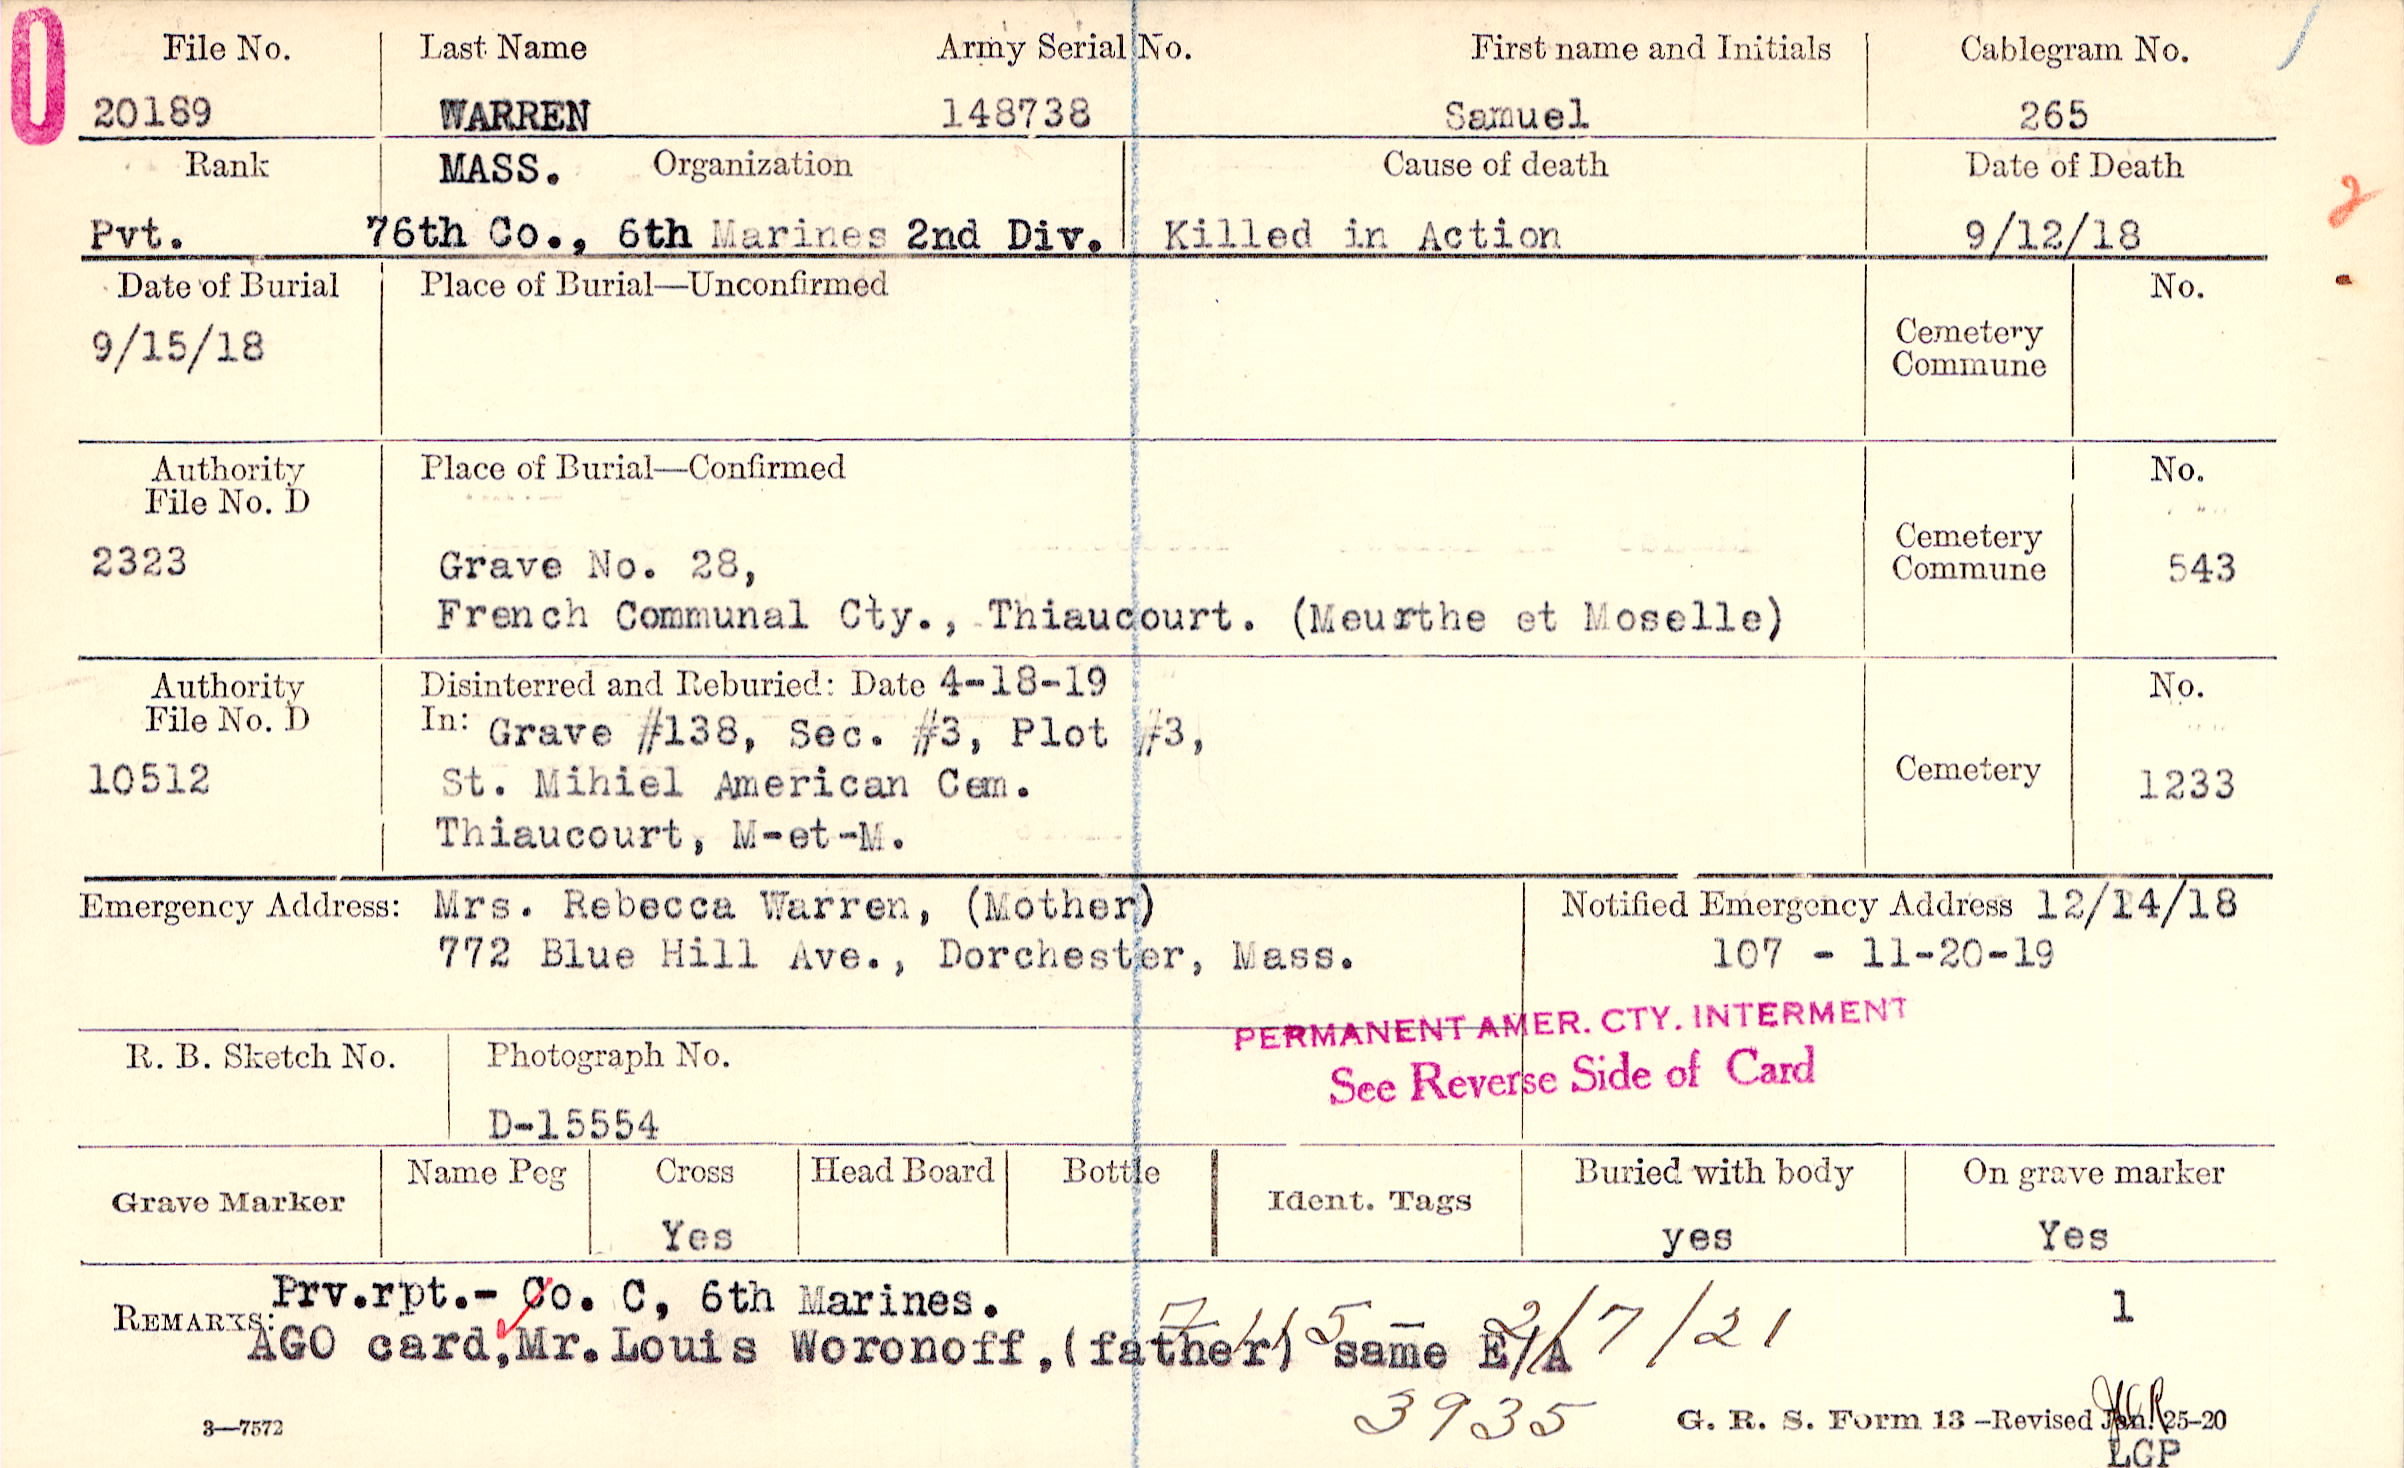 File No. Last Name Army Serial No. First name and Initials Cablegram No.
20189 WARREN 148738 Samuel 265
Rank MASS. Organization Cause of death Date of Death
Pvt. 76th Co., 6th Marines 2nd Div. Killed in Action 9/12/18
2
Date of Burial Place of Burial—Unconfirmed No.
9/15/18
Cemetery
Commune
Authority Place of Burial—Confirmed No.
File No. D
Cemetery
2323 Grave No. 28, Commune 543
French Communal Cty., Thiaucourt. (Meurthe et Moselle)
Authority Disinterred and Reburied: Date 4-18-19 No.
File No. D In: Grave #138, Sec. #3, Plot #3,
10512 St. Mihiel American Cem. Cemetery 1233
Thiaucourt, M-et-M.
Emergency Address: Mrs. Rebecca Warren, (Mother) Notified Emergency Address 12/14/18
772 Blue Hill Ave., Dorchester, Mass. 107 - 11-20-19
PERMANENT AMER. CTY. INTERMENT
See Reverse Side of Card
R. B. Sketch No. Photograph No.
D-15554
Grave Marker Name Peg Cross Head Board Bottle Ident. Tags Buried with body On grave marker
Yes yes Yes
REMARKS: Prv.rpt.- Co. C, 6th Marines. 1
AGO card, Mr. Louis Woronoff, (father) same E/A
2/7/21
3935
3—7572 G. R. S. Form 13 –Revised Jan. 25–20
LGP